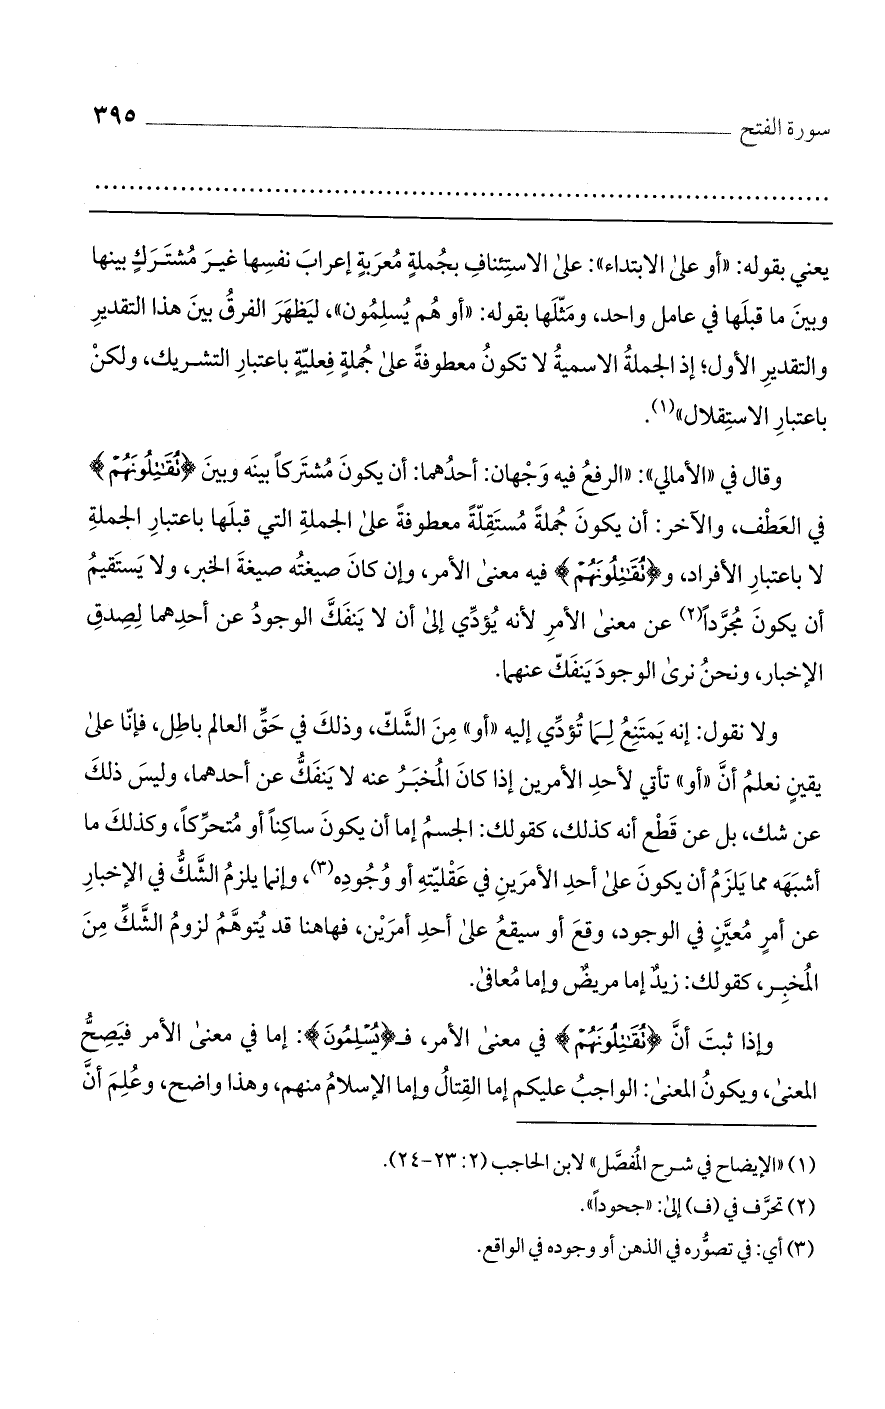 سورة الفتح ٣٩٥
يعني بقوله: «أو على الابتداء»: على الاستِئنافِ بجُملةٍ مُعرَبةٍ إعرابَ نفسِها غيرَ مُشتَركٍ بينها
وبينَ ما قبلَها في عامل واحد، ومَثّلَها بقوله: «أو هُم يُسلِمُون»، ليَظهَرَ الفرقُ بينَ هذا التقديرِ
والتقديرِ الأول؛ إذ الجملةُ الاسميةُ لا تكونُ معطوفةً على جُملةٍ فِعليّةٍ باعتبارِ التشريك، ولكنْ
باعتبارِ الاستِقلال»(١).
وقال في «الأمالي»: «الرفعُ فيه وَجْهان: أحدُهما: أن يكونَ مُشتَركاً بينَه وبينَ ﴿نُقَٰتِلُونَهُمْ﴾
في العَطْف، والآخر: أن يكونَ جُملةً مُستَقِلّةً معطوفةً على الجملةِ التي قبلَها باعتبارِ الجملةِ
لا باعتبارِ الأفراد، و﴿نُقَٰتِلُونَهُمْ﴾ فيه معنى الأمر، وإن كانَ صيغتُه صيغةَ الخبر، ولا يَستَقيمُ
أن يكونَ مُجرَّداً(٢) عن معنى الأمرِ لأنه يُؤدِّي إلى أن لا يَنفَكَّ الوجودُ عن أحدِهما لِصِدقِ
الإخبار، ونحنُ نرى الوجودَ يَنفَكّ عنهما.
ولا نقول: إنه يَمتَنِعُ لِمَا تُؤدِّي إليه «أو» مِنَ الشَّكّ، وذلكَ في حَقِّ العالم باطِل، فإنّا على
يقينٍ نعلمُ أنَّ «أو» تأتي لأحدِ الأمرين إذا كانَ المُخبَرُ عنه لا يَنفَكُّ عن أحدهما، وليسَ ذلكَ
عن شك، بل عن قَطْعٍ أنه كذلك، كقولك: الجسمُ إما أن يكونَ ساكِناً أو مُتحرِّكاً، وكذلكَ ما
أشبَهَه مما يَلزَمُ أن يكونَ على أحدِ الأمرَينِ في عَقْليّتِهِ أو وُجُودِه(٣)، وإنما يلزمُ الشَّكُّ في الإخبارِ
عن أمرٍ مُعيَّنٍ في الوجود، وقعَ أو سيقعُ على أحدِ أمرَيْن، فهاهنا قد يُتوهَّمُ لزومُ الشَّكِّ مِنَ
المُخبِر، كقولك: زيدٌ إما مريضٌ وإما مُعافى.
وإذا ثبتَ أنَّ ﴿نُقَٰتِلُونَهُمْ﴾ في معنى الأمر، فـ﴿يُسْلِمُونَ﴾: إما في معنى الأمر فيَصِحُّ
المعنى، ويكونُ المعنى: الواجبُ عليكم إما القِتالُ وإما الإسلامُ منهم، وهذا واضح، وعُلِمَ أنَّ
(١) «الإيضاح في شرح المُفصَّل» لابن الحاجب (٢: ٢٣-٢٤).
(٢) تحرَّف في (ف) إلى: «جحوداً».
(٣) أي: في تصوُّره في الذهن أو وجوده في الواقع.